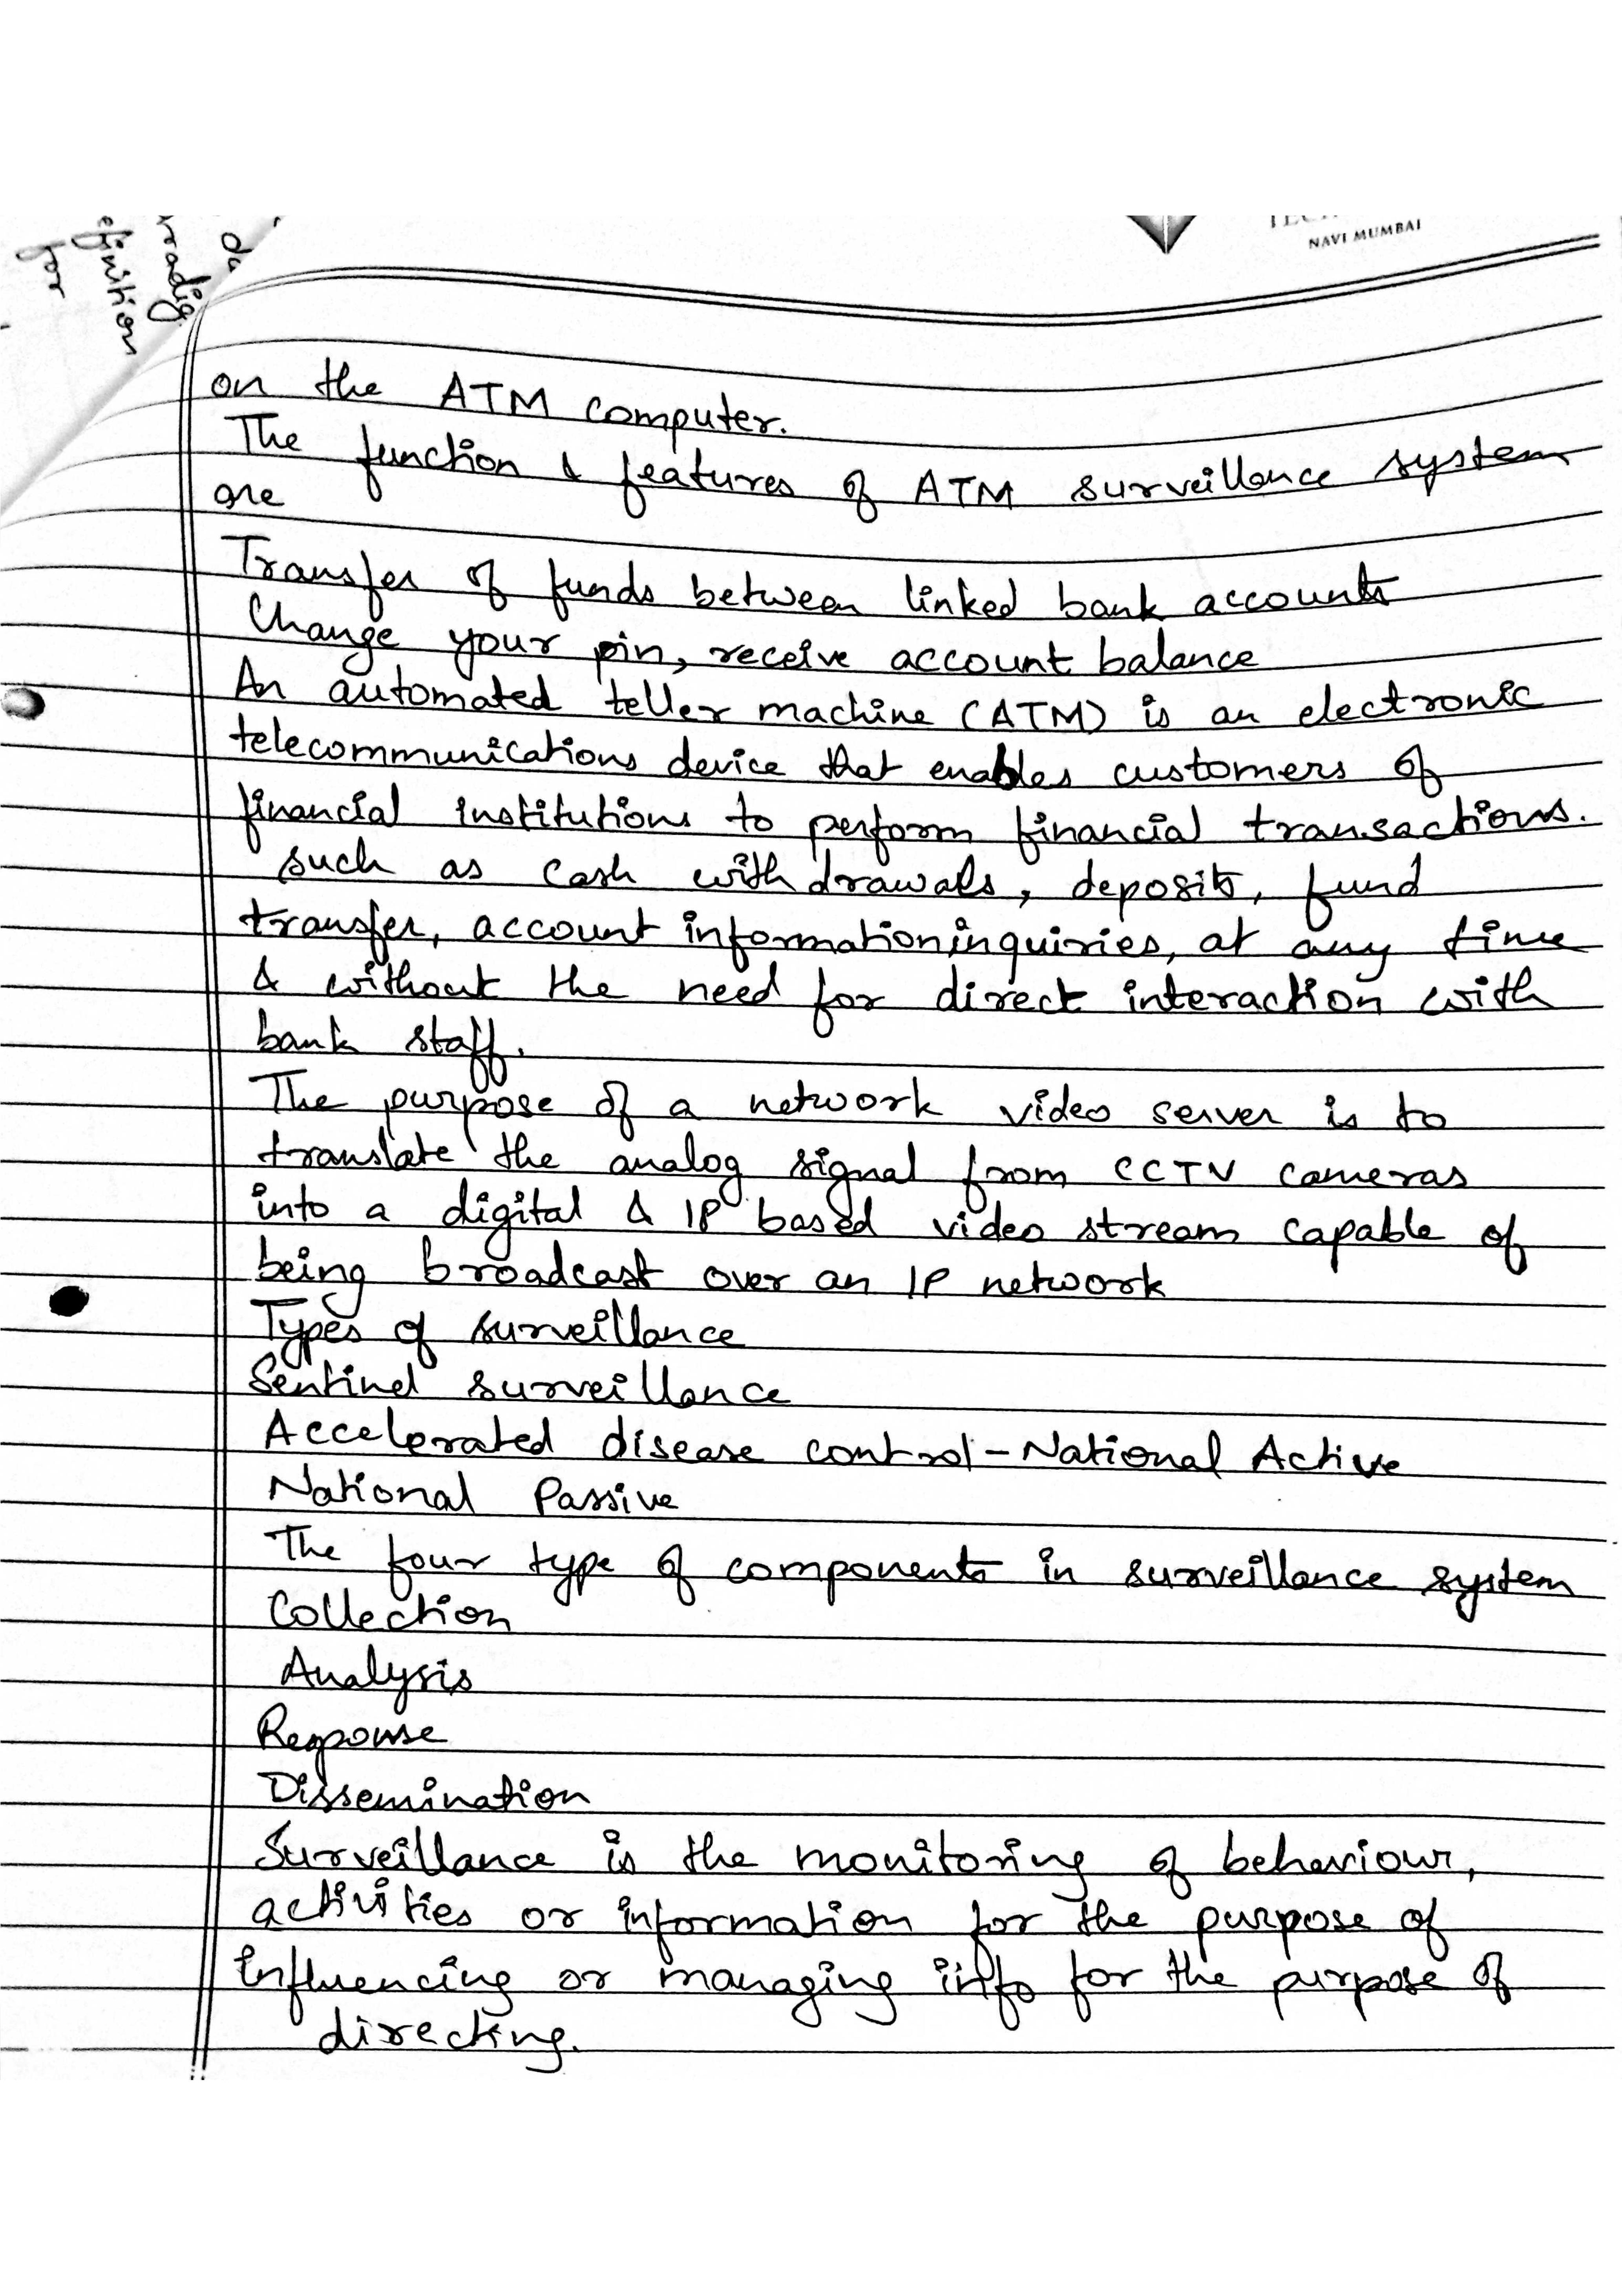 NAVI MUMBAI
for
on the ATM computer.
The function & features of ATM surveillance system
are
Transfer of funds between linked bank accounts
Change your pin, receive account balance
An automated teller machine (ATM) is an electronic
telecommunications device that enables customers of
financial institutions to perform financial transactions.
such as cash withdrawals, deposits, fund
transfer, account informationinquiries, at any time
& without the need for direct interaction with
bank staff.
The purpose of a network video server is to
translate the analog signal from CCTV cameras
into a digital & IP based video stream capable of
being broadcast over an IP network
Types of surveillance
Sentinel surveillance
Accelerated disease control - National Active
National Passive
The four type of components in surveillance system
Collection
Analysis
Response
Dissemination
Surveillance is the monitoring of behaviour,
activities or information for the purpose of
influencing or managing info for the purpose of
directing.